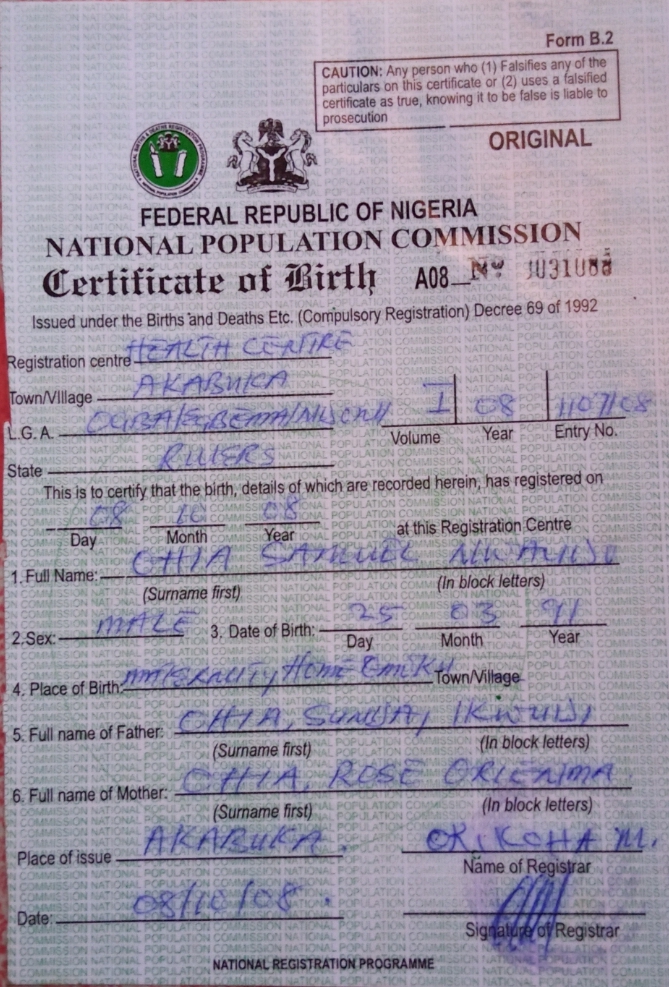 Form B.2
CAUTION: Any person who (1) Falsifies any of the
particulars on this certificate or (2) uses a falsified
certificate as true, knowing it to be false is liable to
prosecution
ORIGINAL
FEDERAL REPUBLIC OF NIGERIA
NATIONAL POPULATION COMMISSION
Certificate of Birth A08
Issued under the Births and Deaths Etc. (Compulsory Registration) Decree 69 of 1992
Registration centre HEALTH CENTRE
Town/Village AKABUKA
L.G.A.
I 08 1107/08
Volume Year Entry No.
State RIVERS
This is to certify that the birth, details of which are recorded herein, has registered on
08 10 08 at this Registration Centre
Day Month Year
1. Full Name: OHIA SAMUEL
(Surname first) (In block letters)
2. Sex: MALE 3. Date of Birth: 25 03 91
Day Month Year
4. Place of Birth: MATERNITY Home Town/Village
5. Full name of Father: OHIA, SUNDAY
(Surname first) (In block letters)
6. Full name of Mother: OHIA, ROSE
(Surname first) (In block letters)
Place of issue AKABUKA.
Name of Registrar
Date: 08/10/08.
Signature of Registrar
NATIONAL REGISTRATION PROGRAMME